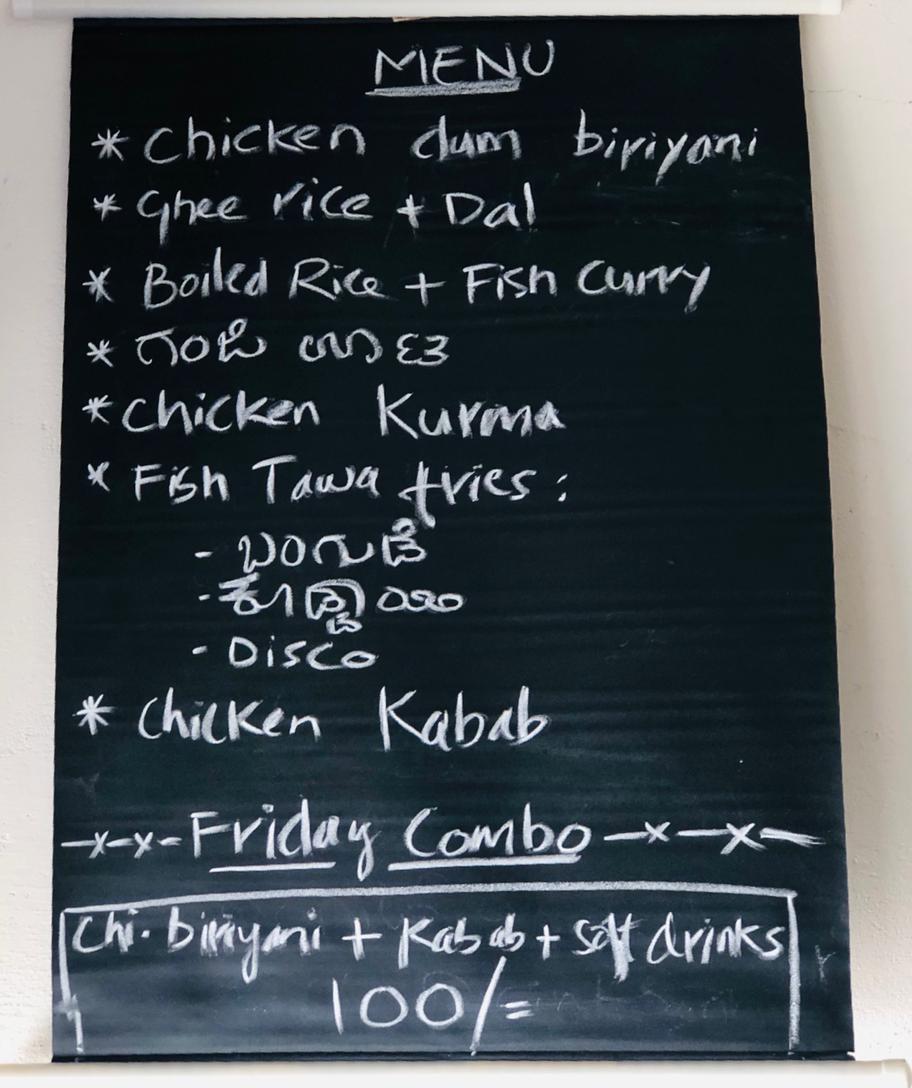 MENU
* Chicken dum biriyani
* Ghee rice + Dal
* Boiled Rice + Fish Curry
* ಗಂಜಿ ಊಟ
* Chicken Kurma
* Fish Tawa fries :
- ಬಂಗುಡೆ
-
- Disco
* Chicken Kabab
-x-x- Friday Combo -x-x-
Chi. biriyani + Kabab + Soft drinks
100/=